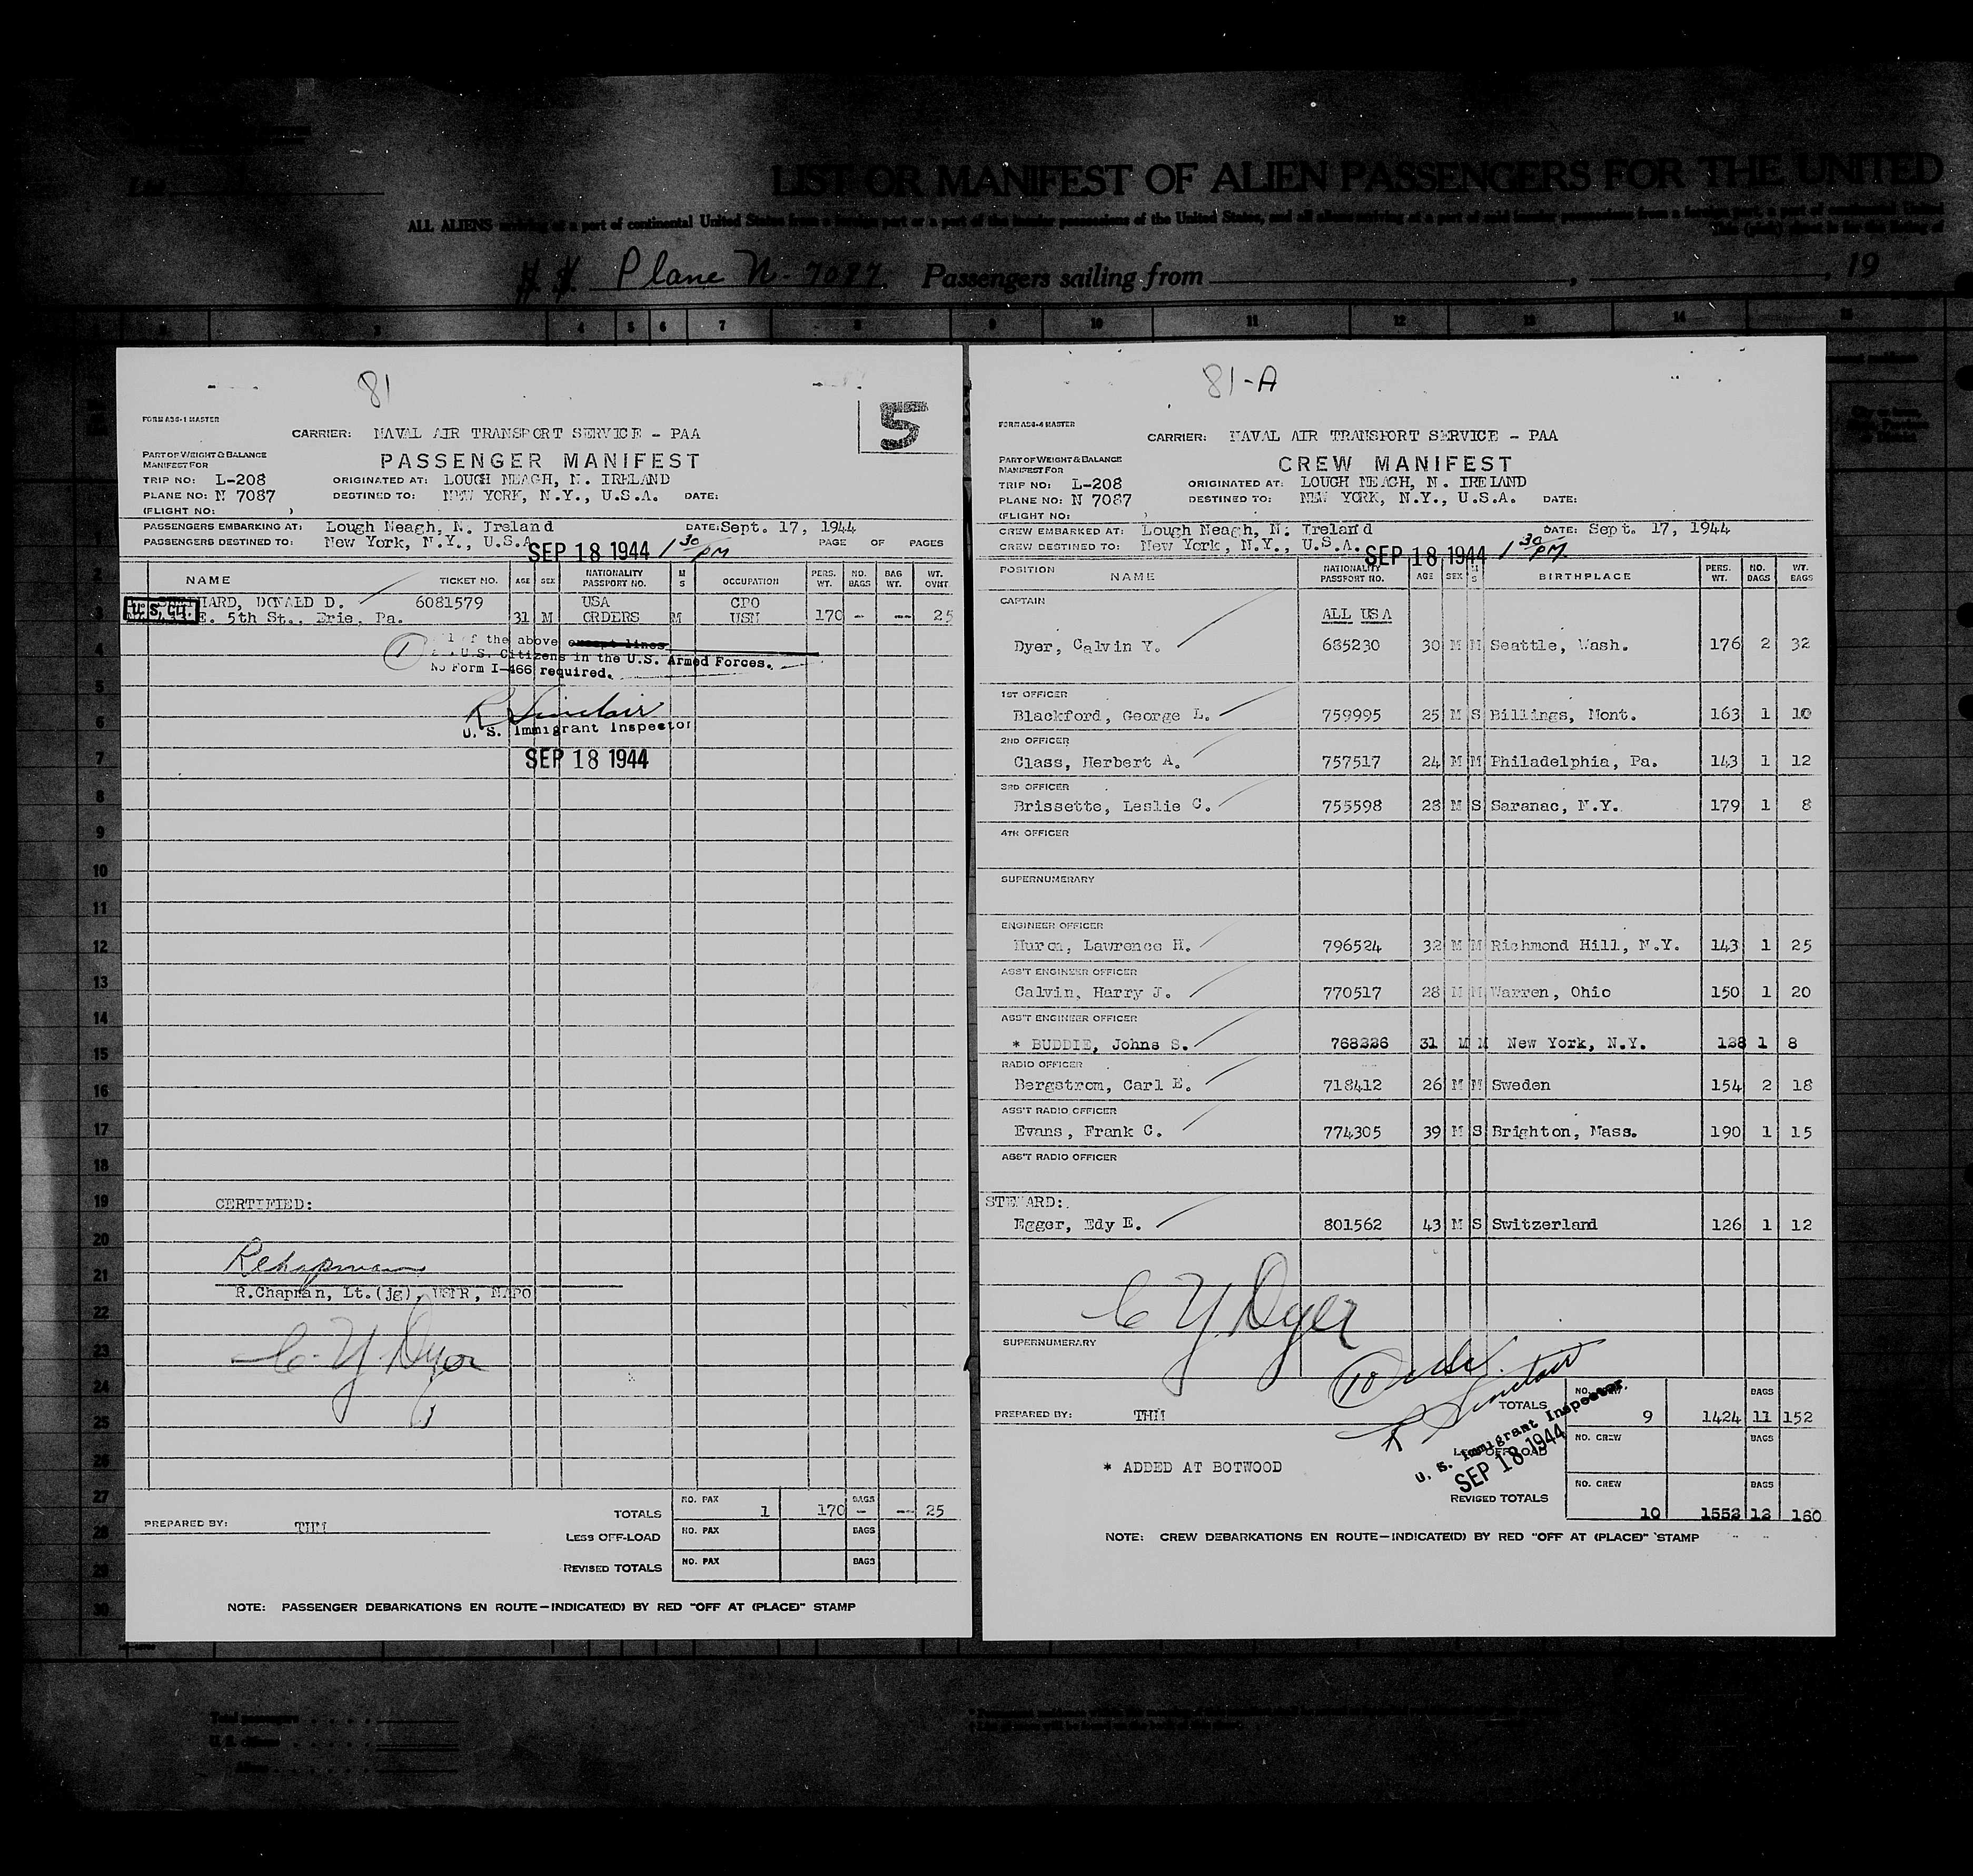 List
LIST OR MANIFEST OF ALIEN PASSENGERS FOR THE UNITED
ALL ALIENS arriving at a port of continental United States from a foreign port or a port of the insular possessions of the United States, and all aliens arriving at a port of said insular possessions from a foreign port, a port of continental United
Plane N-7087 Passengers sailing from , , 19
1 3 4 5 6 7 8 9 10 11 12 13 14 15
81
5
FORM ASG-1 MASTER
CARRIER: NAVAL AIR TRANSPORT SERVICE - PAA
PART OF WEIGHT & BALANCE
MANIFEST FOR
PASSENGER MANIFEST
TRIP NO: L-208 ORIGINATED AT: LOUGH NEAGH, N. IRELAND
PLANE NO: N 7087 DESTINED TO: NEW YORK, N.Y., U.S.A. DATE:
(FLIGHT NO: )
PASSENGERS EMBARKING AT: Lough Neagh, N. Ireland DATE: Sept. 17, 1944
PASSENGERS DESTINED TO: New York, N.Y., U.S.A. SEP 18 1944 1 30 PM PAGE OF PAGES
NAME TICKET NO. AGE SEX NATIONALITY PASSPORT NO. M S OCCUPATION PERS. WT. NO. BAGS BAG WT. WT. OVHT.
HARD, DONALD D. 6081579 USA CPO
U.S. CIT. E. 5th St., Erie, Pa. 31 M ORDERS M USN 170 - -- 25
1 of the above except lines
U.S. Citizens in the U.S. Armed Forces.
No Form I-466 required.
R Sinclair
U. S. Immigrant Inspector
SEP 18 1944
CERTIFIED:
RChapman
R.Chapman, Lt.(jg), USNR, NAPO
C. Y. Dyer
TOTALS NO. PAX 1 170 BAGS - -- 25
PREPARED BY: THM
LESS OFF-LOAD NO. PAX BAGS
REVISED TOTALS NO. PAX BAGS
NOTE: PASSENGER DEBARKATIONS EN ROUTE—INDICATE(D) BY RED "OFF AT (PLACE)" STAMP
81-A
FORM ASG-4 MASTER
CARRIER: NAVAL AIR TRANSPORT SERVICE - PAA
PART OF WEIGHT & BALANCE
MANIFEST FOR
CREW MANIFEST
TRIP NO: L-208 ORIGINATED AT: LOUGH NEAGH, N. IRELAND
PLANE NO: N 7087 DESTINED TO: NEW YORK, N.Y., U.S.A. DATE:
(FLIGHT NO: )
CREW EMBARKED AT: Lough Neagh, N. Ireland DATE: Sept. 17, 1944
CREW DESTINED TO: New York, N.Y., U.S.A. SEP 18 1944 1 30 PM.
POSITION NAME NATIONALITY PASSPORT NO. AGE SEX M S BIRTHPLACE PERS. WT. NO. BAGS WT. BAGS
CAPTAIN ALL USA
Dyer, Calvin Y. 685230 30 M M Seattle, Wash. 176 2 32
1ST OFFICER
Blackford, George L. 759995 25 M S Billings, Mont. 163 1 10
2ND OFFICER
Class, Herbert A. 757517 24 M M Philadelphia, Pa. 143 1 12
3RD OFFICER
Brissette, Leslie C. 755598 28 M S Saranac, N.Y. 179 1 8
4TH OFFICER
SUPERNUMERARY
ENGINEER OFFICER
Huron, Lawrence H. 796524 32 M M Richmond Hill, N.Y. 143 1 25
ASS'T ENGINEER OFFICER
Calvin, Harry J. 770517 28 M M Warren, Ohio 150 1 20
ASS'T ENGINEER OFFICER
* BUDDIE, Johns S. 768226 31 M M New York, N.Y. 128 1 8
RADIO OFFICER
Bergstrom, Carl E. 718412 26 M M Sweden 154 2 18
ASS'T RADIO OFFICER
Evans, Frank C. 774305 39 M S Brighton, Mass. 190 1 15
ASS'T RADIO OFFICER
STEWARD:
Egger, Edy E. 801562 43 M S Switzerland 126 1 12
C Y. Dyer
SUPERNUMERARY
10
R Sinclair
U. S. Immigrant Inspector.
SEP 18 1944
PREPARED BY: THM TOTALS 9 1424 BAGS 11 152
LESS OFF-LOAD NO. CREW BAGS
* ADDED AT BOTWOOD
REVISED TOTALS NO. CREW 10 1552 BAGS 12 160
NOTE: CREW DEBARKATIONS EN ROUTE—INDICATE(D) BY RED "OFF AT (PLACE)" STAMP
Total passengers
U.S. citizens
Aliens